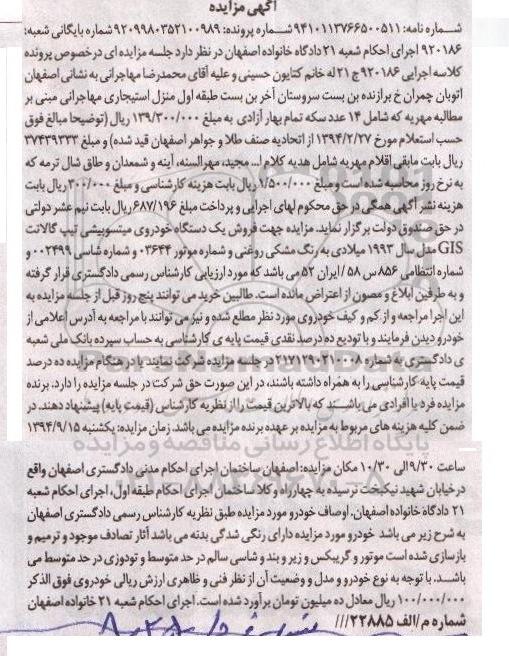 آگهی مزایده
شماره نامه: ۹۴۱۰۱۱۳۷۶۶۵۰۰۵۱۱ شماره پرونده: ۹۲۰۹۹۸۰۳۵۲۱۰۰۹۸۹ شماره بایگانی شعبه:
۹۲۰۱۸۶ اجرای احکام شعبه ۲۱ دادگاه خانواده اصفهان در نظر دارد جلسه مزایده ای در خصوص پرونده
کلاسه اجرایی ۹۲۰۱۸۶ ج ۲۱ له خانم کتایون حسینی و علیه آقای محمدرضا مهاجرانی به نشانی اصفهان
اتوبان چمران خ برازنده بن بست سروستان آخر بن بست طبقه اول منزل استیجاری مهاجرانی مبنی بر
مطالبه مهریه که شامل ۱۴ عدد سکه تمام بهار آزادی به مبلغ ۱۳۹/۳۰۰/۰۰۰ ریال (توضیحا مبالغ فوق
حسب استعلام مورخ ۱۳۹۴/۲/۲۷ از اتحادیه صنف طلا و جواهر اصفهان قید شده) و مبلغ ۳۷۴۳۹۳۳۳
ریال بابت مابقی اقلام مهریه شامل هدیه کلام ا... مجید، مهرالسنه، آینه و شمعدان و طاق شال ترمه که
به نرخ روز محاسبه شده است و مبلغ ۱/۵۰۰/۰۰۰ ریال بابت هزینه کارشناسی و مبلغ ۳۰۰/۰۰۰ ریال بابت
هزینه نشر آگهی همگی در حق محکوم لهای اجرایی و پرداخت مبلغ ۶۸۷/۱۹۶ ریال بابت نیم عشر دولتی
در حق صندوق دولت برگزار نماید. مزایده جهت فروش یک دستگاه خودروی میتسوبیشی تیپ گالانت
GIS مدل سال ۱۹۹۳ میلادی به رنگ مشکی روغنی و شماره موتور ۰۳۶۴۴ و شماره شاسی ۰۰۲۴۹۹ و
شماره انتظامی ۸۵۶ س ۵۸ / ایران ۵۳ می باشد که مورد ارزیابی کارشناس رسمی دادگستری قرار گرفته
و به طرفین ابلاغ و مصون از اعتراض مانده است. طالبین خرید می توانند پنج روز قبل از جلسه مزایده به
این اجرا مراجعه و از کم و کیف خودروی مورد نظر مطلع شده و نیز می توانند با مراجعه به آدرس اعلامی از
خودرو دیدن فرمایند و با تودیع ده درصد نقدی قیمت پایه ی کارشناسی به حساب سپرده بانک ملی شعبه
ی دادگستری به شماره ۲۱۷۱۲۹۰۲۱۰۰۰۸ در جلسه مزایده شرکت نمایند یا در هنگام مزایده ده درصد
قیمت پایه کارشناسی را به همراه داشته باشند، در این صورت حق شرکت در جلسه مزایده را دارد. برنده
مزایده فرد یا افرادی می باشند که بالاترین قیمت را از نظریه کارشناس (قیمت پایه) پیشنهاد دهند. در
ضمن کلیه هزینه های مربوط به مزایده بر عهده برنده مزایده می باشد. زمان مزایده: یکشنبه ۱۳۹۴/۹/۱۵
پایگاه اطلاع رسانی مناقصه و مزایده
ساعت ۹/۳۰ الی ۱۰/۳۰ مکان مزایده: اصفهان ساختمان اجرای احکام مدنی دادگستری اصفهان واقع
در خیابان شهید نیکبخت نرسیده به چهارراه وکلا ساختمان اجرای احکام طبقه اول، اجرای احکام شعبه
۲۱ دادگاه خانواده اصفهان. اوصاف خودرو مورد مزایده طبق نظریه کارشناس رسمی دادگستری اصفهان
به شرح زیر می باشد خودرو مورد مزایده دارای رنگی شدگی بدنه می باشد آثار تصادف موجود و ترمیم و
بازسازی شده است موتور و گریبکس و زیر و بند و شاسی سالم در حد متوسط و تودوزی در حد متوسط می
باشد. با توجه به نوع خودرو و مدل و وضعیت آن از نظر فنی و ظاهری ارزش ریالی خودروی فوق الذکر
۱۰۰/۰۰۰/۰۰۰ ریال معادل ده میلیون تومان برآورد شده است. اجرای احکام شعبه ۲۱ خانواده اصفهان
شماره م/الف ۲۲۸۸۵///